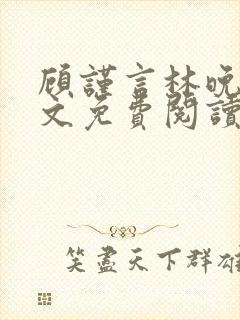 顾謹言林晚
文免費閱讀
笑盡天下群雄